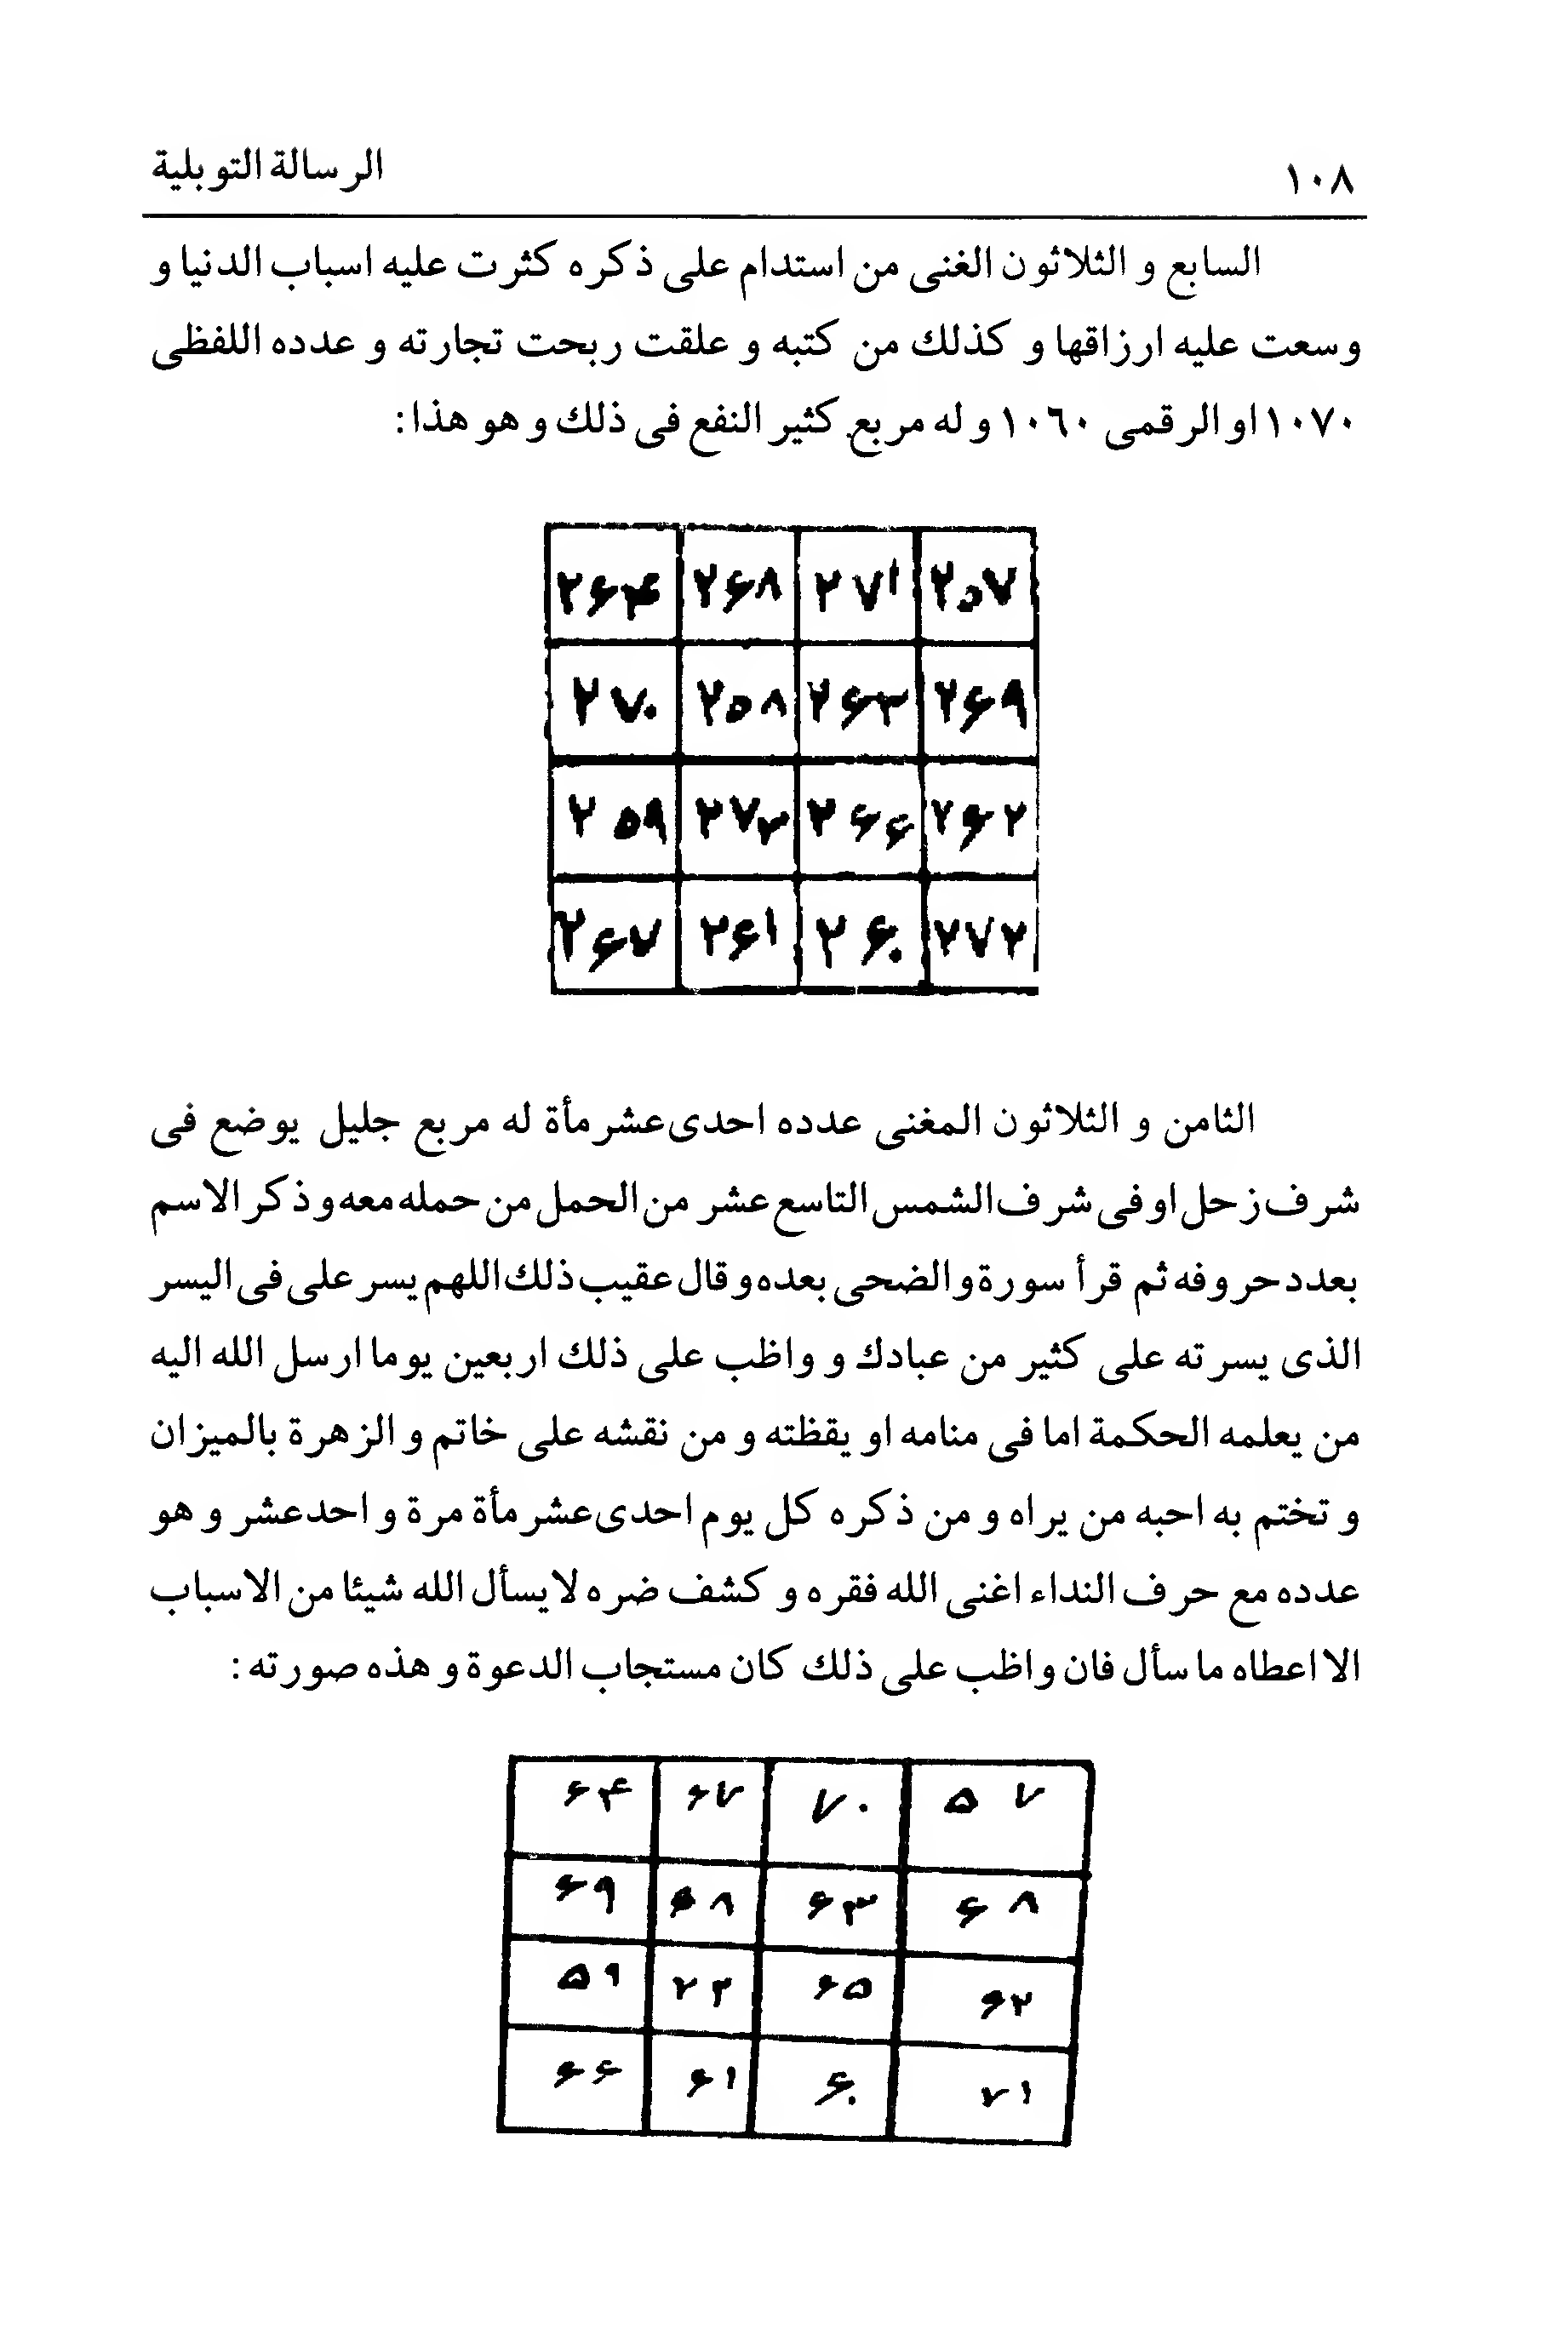 ١٠٨
الرسالة التوبلية
السابع و الثلاثون الغنى من استدام على ذكره كثرت عليه اسباب الدنيا و
وسعت عليه ارزاقها و كذلك من كتبه و علقت ربحت تجارته و عدده اللفظى
١٠٧٠ او الرقمى ١٠٦٠ و له مربع كثير النفع فى ذلك و هو هذا:
۲۶۴ ۲۶۸ ۲۷۱ ۲۵۷
۲۷۰ ۲۵۸ ۲۶۳ ۲۶۹
۲۵۹ ۲۷۳ ۲۶۶ ۲۶۲
۲۶۷ ۲۶۱ ۲۶۰ ۲۷۲
الثامن و الثلاثون المغنى عدده احدى‌عشر مأة له مربع جليل يوضع فى
شرف زحل او فى شرف الشمس التاسع عشر من الحمل من حمله معه و ذكر الاسم
بعدد حروفه ثم قرأ سورة و الضحى بعده و قال عقيب ذلك اللهم يسر على فى اليسر
الذى يسرته على كثير من عبادك و واظب على ذلك اربعين يوما ارسل الله اليه
من يعلمه الحكمة اما فى منامه او يقظته و من نقشه على خاتم و الزهرة بالميزان
و تختم به احبه من يراه و من ذكره كل يوم احدى‌عشر مأة مرة و احدعشر و هو
عدده مع حرف النداء اغنى الله فقره و كشف ضره لايسأل الله شيئا من الاسباب
الا اعطاه ما سأل فان واظب على ذلك كان مستجاب الدعوة و هذه صورته:
۶۴ ۶۷ ۷۰ ۵۷
۶۹ ۶۸ ۶۳ ۶۸
۵۹ ۷۲ ۶۵ ۶۲
۶۶ ۶۱ ۶۰ ۷۱